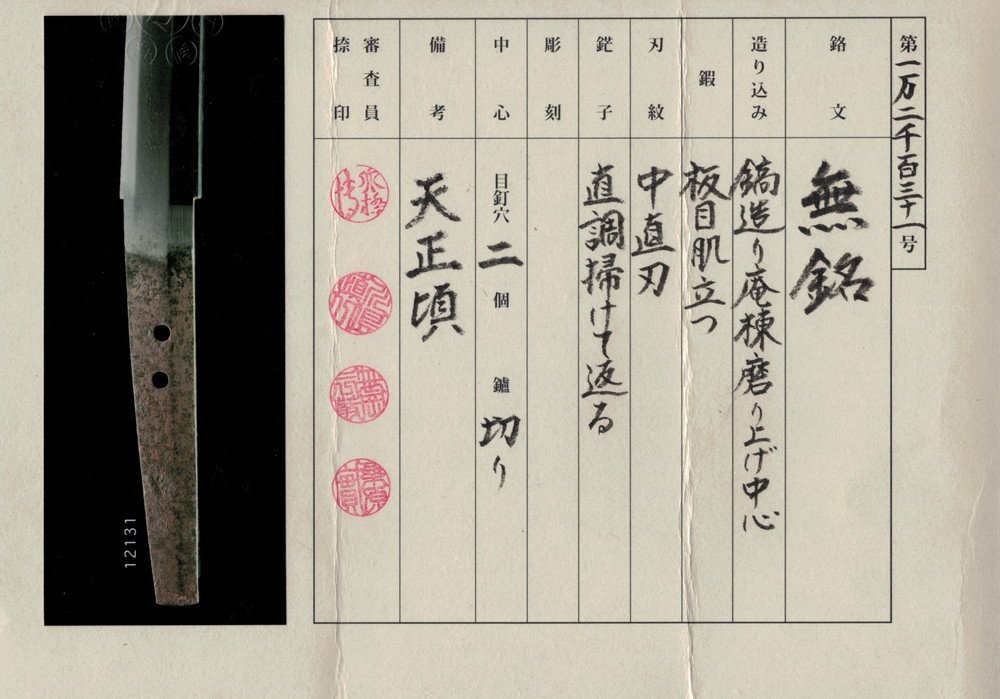 第一万二千百三十一号
銘文
無銘
造り込み
鎬造り庵棟磨り上げ中心
鍜
板目肌立つ
刃紋
中直刃
鋩子
直調掃けて返る
彫刻
中心
目釘穴 二 個 鑢 切り
備考
天正頃
審査員
捺印
12131